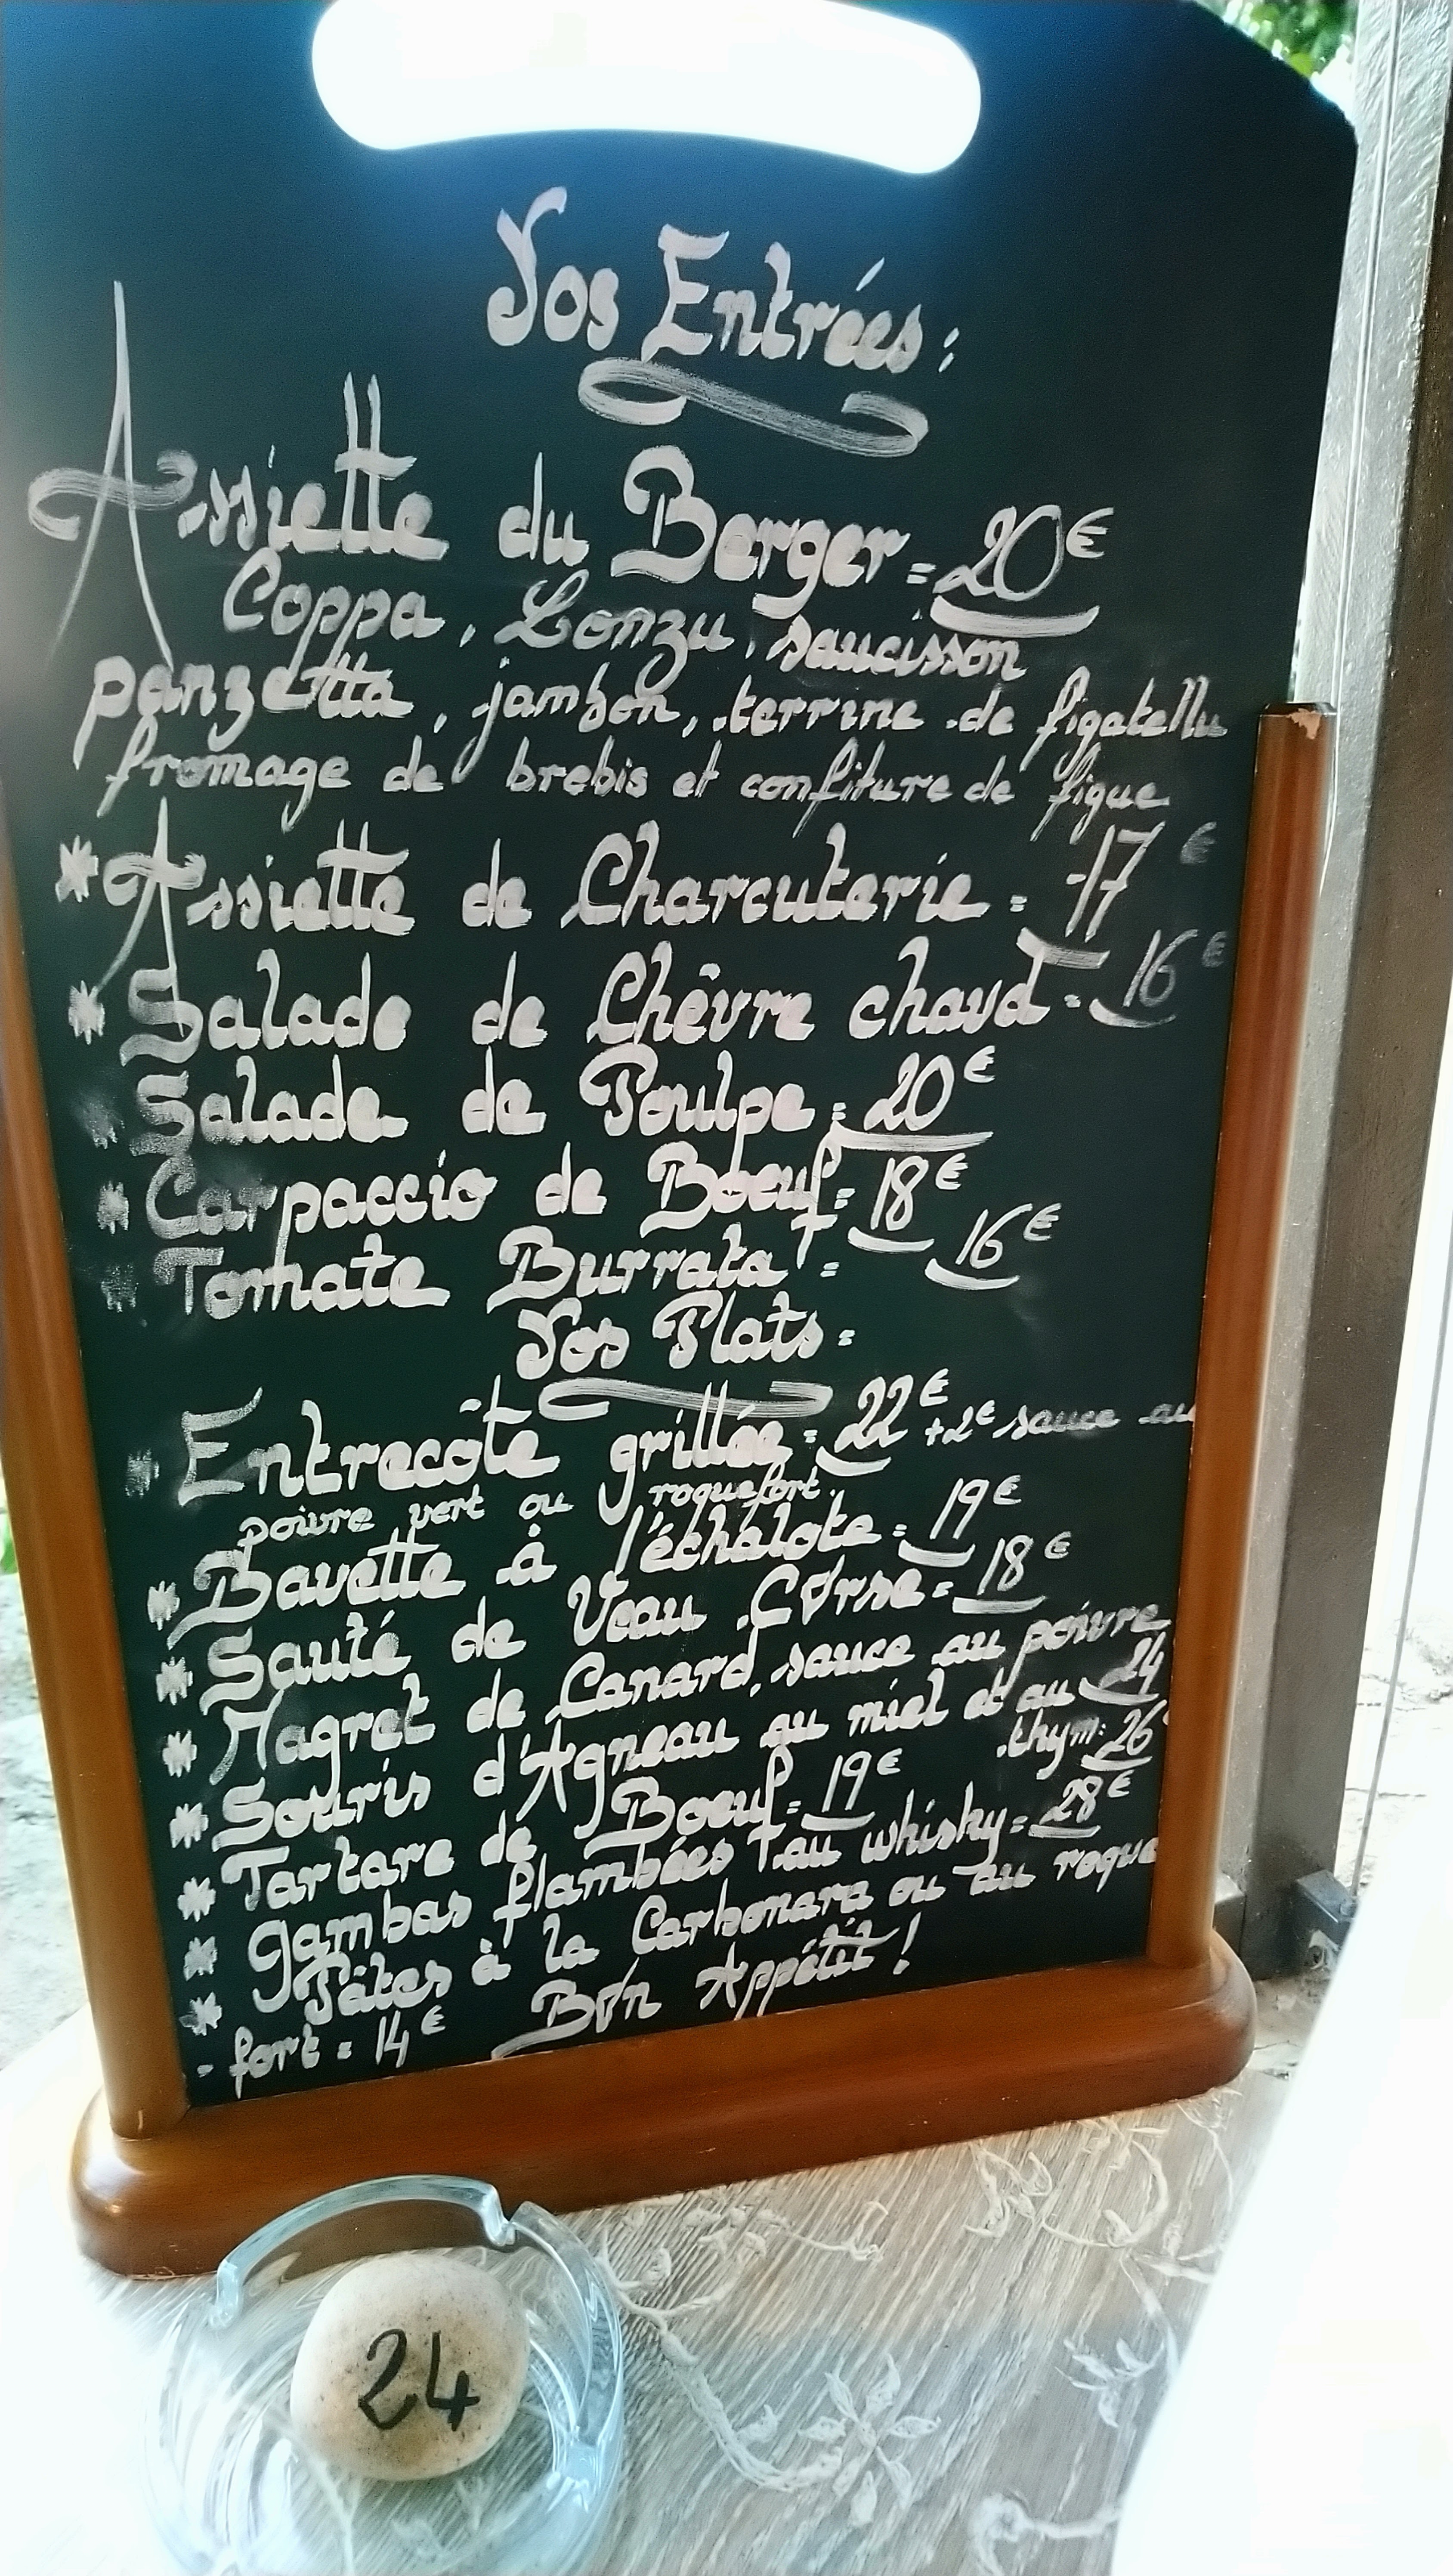 Nos Entrées:
Assiette du Berger = 20€
Coppa, Lonzu, saucisson
panzetta, jambon, terrine de figatellu
fromage de brebis et confiture de figue
* Assiette de Charcuterie = 17€
* Salade de Chêvre chaud = 16€
* Salade de Poulpe = 20€
* Carpaccio de Boeuf = 18€
* Tomate Burrata = 16€
Nos Plats =
* Entrecôte grillée = 22€ +2€ sauce au
poivre vert ou roquefort.
* Bavette à l'échalote = 19€
* Sauté de Veau Corse = 18€
* Magret de Canard, sauce au poivre 24
* Souris d'Agneau au miel et au
thym: 26
* Tartare de Boeuf = 19€
* Gambas flambées au whisky = 28€
* Pâtes à la Carbonara ou au roque
- fort = 14€
Bon Appétit!
24